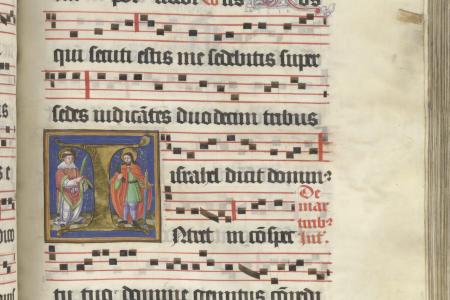 qui secuti estis me sedebitis super
sedes iudicātes duodecim tribus
israhel dicit dominꝰ
De
mar
tiribꝰ
Int̄.
INtret in cōspec
tu tuo domine gemitus